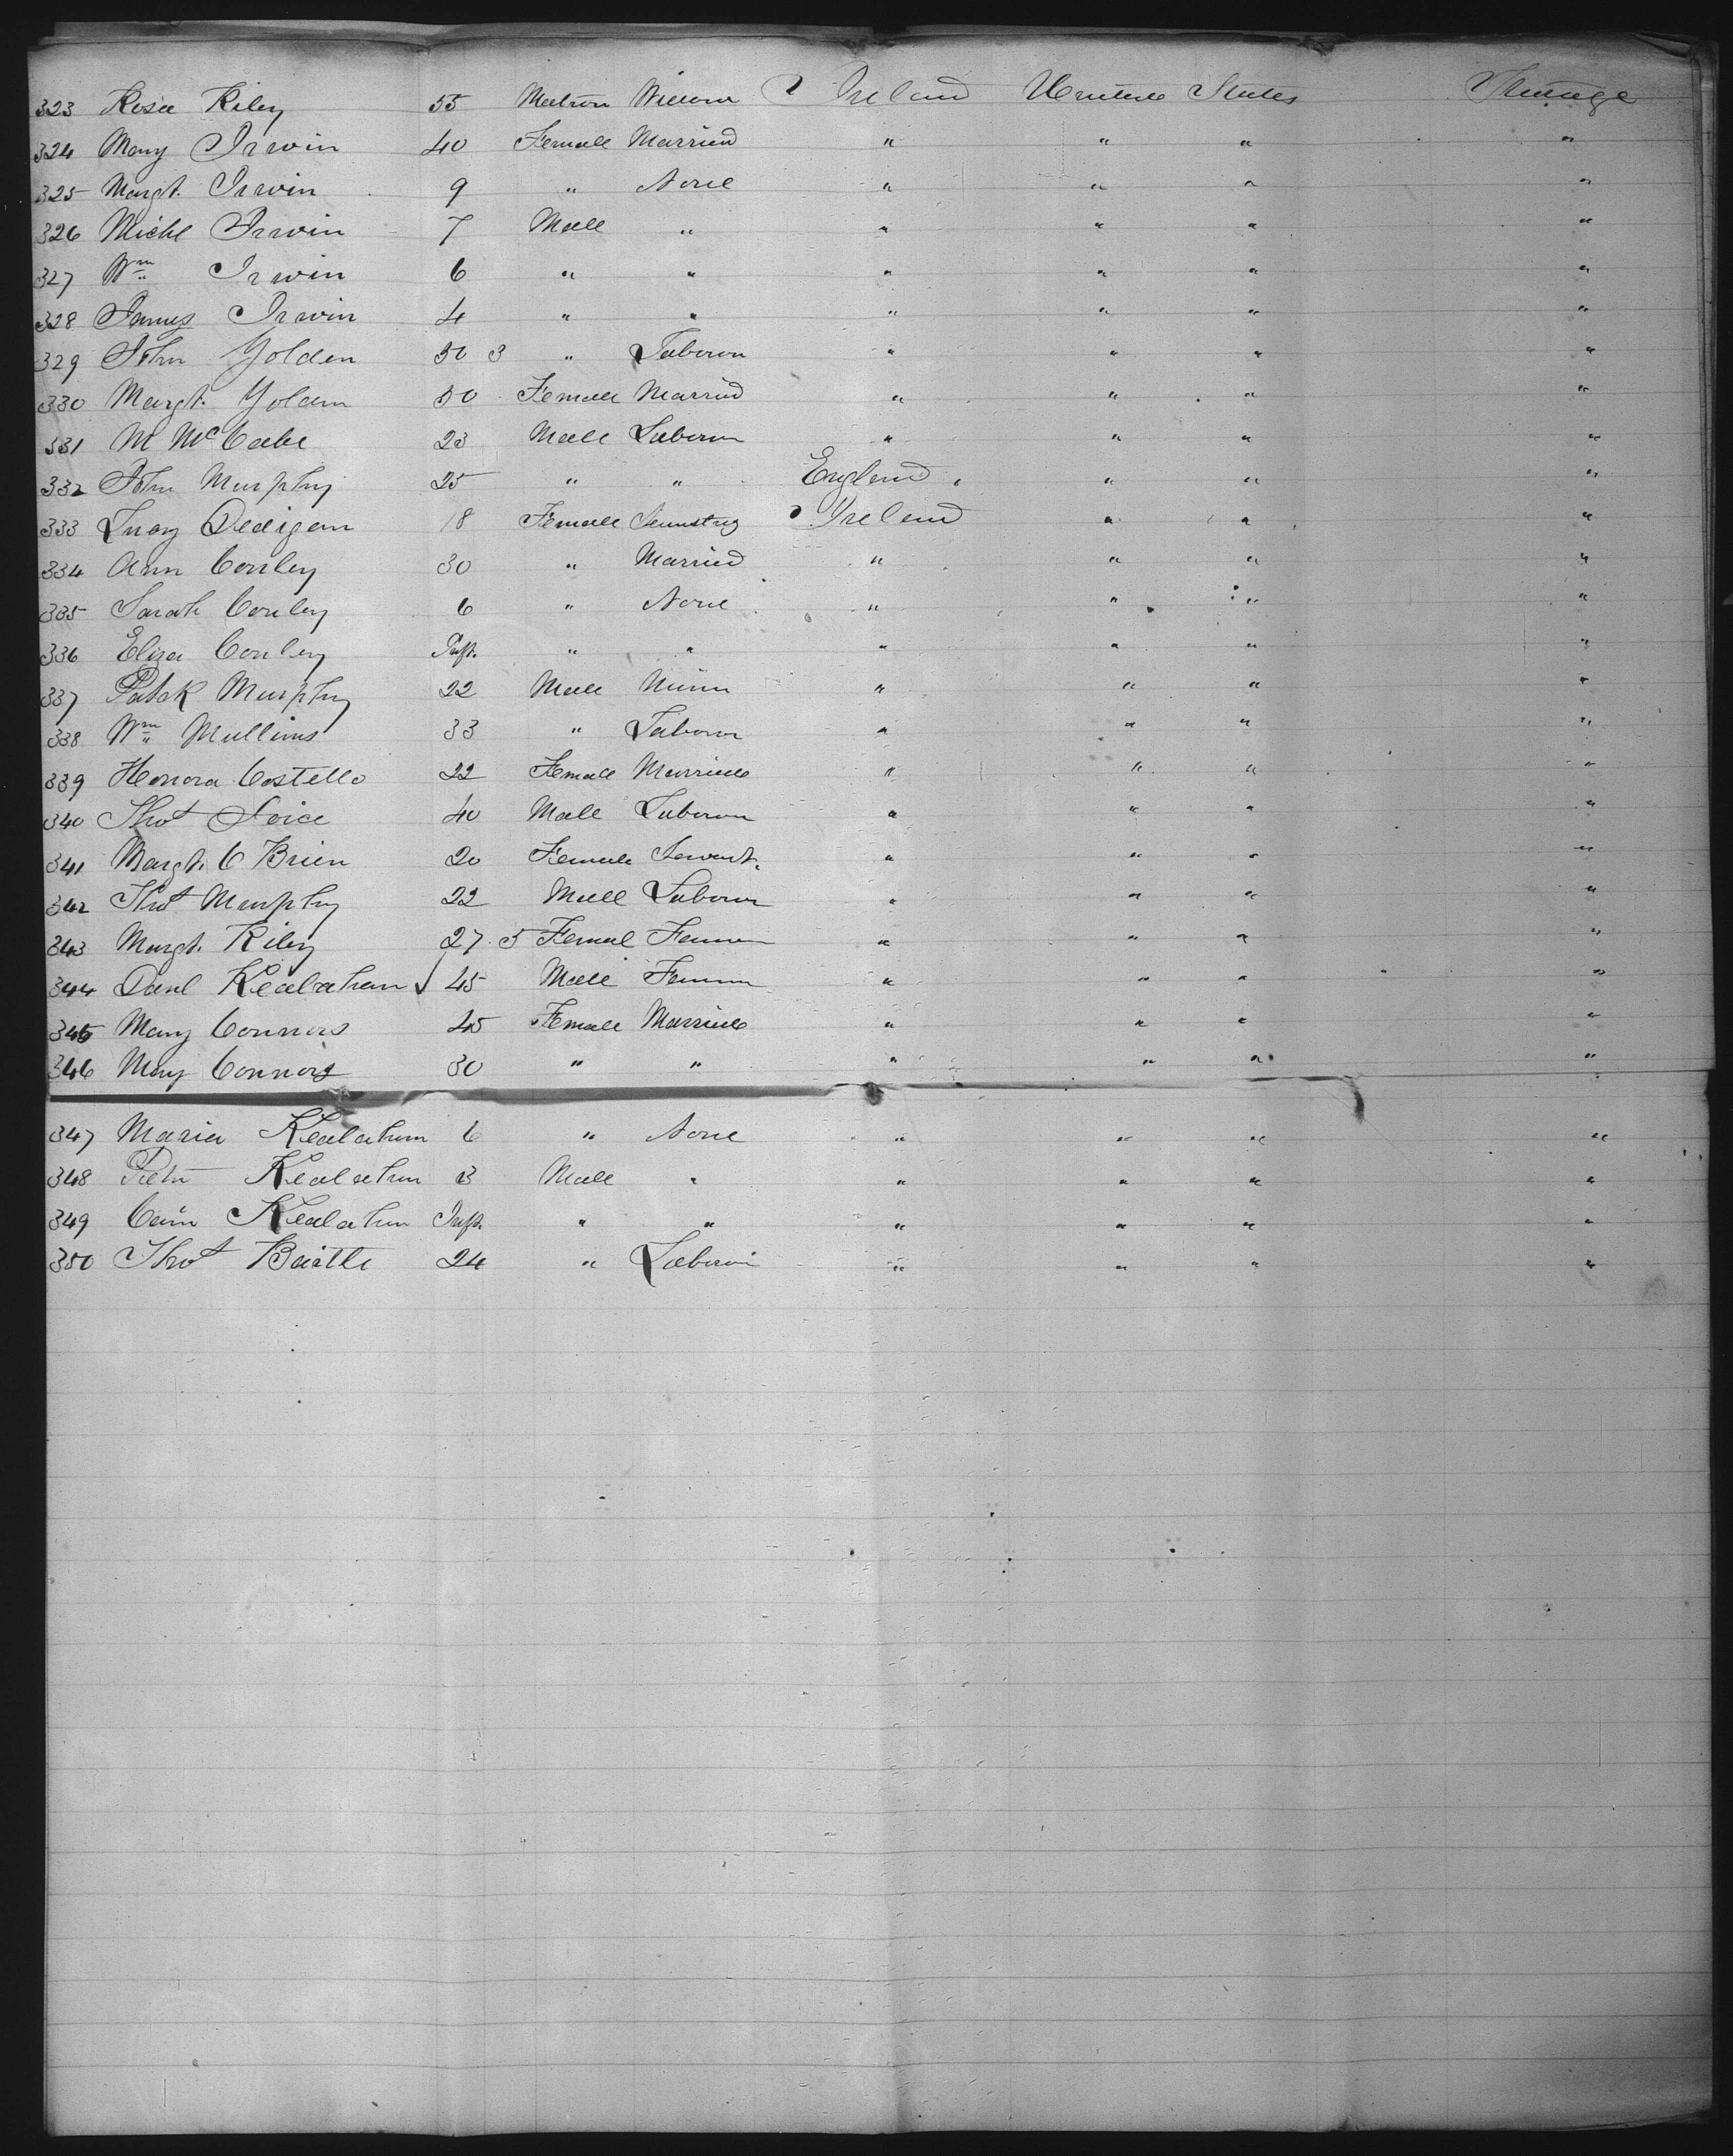 323 Rosa Riley 55 Matron Widow Ireland United States Steerage
324 Mary Irwin 40 Female Married " " " "
325 Margt. Irwin 9 " None " " " "
326 Michl Irwin 7 Male " " " " "
327 Wm Irwin 6 " " " " " "
328 James Irwin 4 " " " " " "
329 John Golden 50 3 " Laborer " " " "
330 Margt. Golden 50 Female Married " " " "
331 M McCabe 23 Male Laborer " " " "
332 John Murphy 25 " " England " " "
333 Dedigan 18 Female Ireland " " "
334 Ann Conley 30 " Married " " " "
335 Sarah Conley 6 " None " " " "
336 Eliza Conley Inft. " " " " " "
337 Patak Murphy 22 Male Miner " " " "
338 Wm Mullins 33 " Laborer " " " "
339 Honora Costello 22 Female Married " " " "
340 Thos 40 Male Laborer " " " "
341 Margt. O Brien 20 Female Servant. " " " "
342 Thos Murphy 22 Male Laborer " " " "
343 Margt. Riley 27 5 Female " " " "
344 Danl Kealahan 45 Male Farmer " " " "
345 Mary Connors 45 Female Married " " " "
346 Mary Connors 30 " " " " " "
347 Maria Kealahan 6 " None " " " "
348 Peter Kealahan 3 Male " " " " "
349 Kealahan Inft. " " " " " "
350 Thos 24 " Laborer " " " "